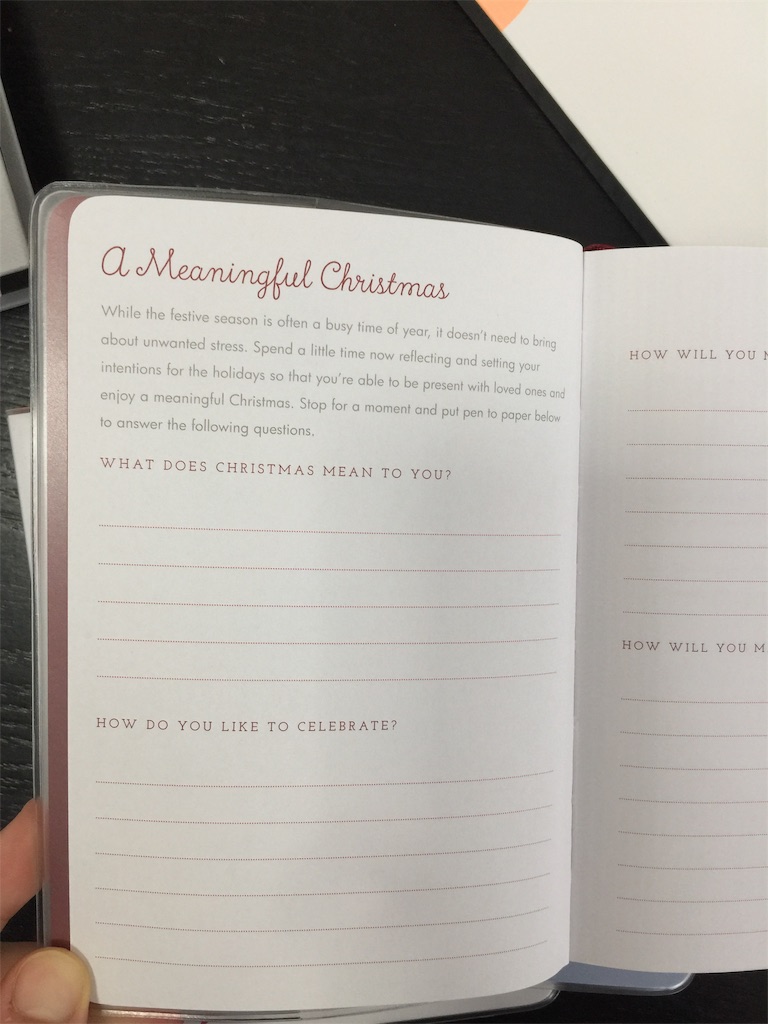 A Meaningful Christmas
While the festive season is often a busy time of year, it doesn't need to bring
about unwanted stress. Spend a little time now reflecting and setting your
intentions for the holidays so that you're able to be present with loved ones and
enjoy a meaningful Christmas. Stop for a moment and put pen to paper below
to answer the following questions.
WHAT DOES CHRISTMAS MEAN TO YOU?
HOW DO YOU LIKE TO CELEBRATE?
HOW WILL YOU
HOW WILL YOU M